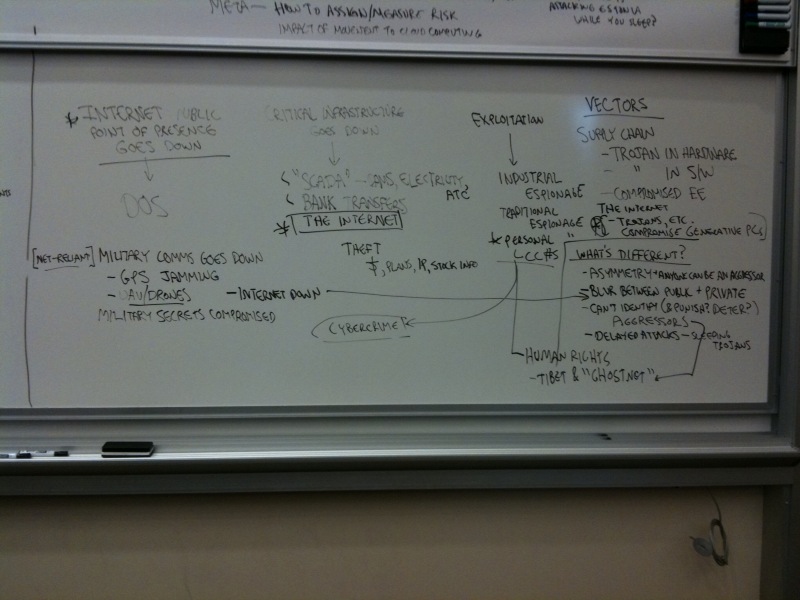 META — HOW TO ASSIGN/MEASURE RISK
IMPACT OF MOVEMENT TO CLOUD COMPUTING
ATTACKING ESTONIA
WHILE YOU SLEEP?
* INTERNET PUBLIC
POINT OF PRESENCE
GOES DOWN
DOS
[NET-RELIANT] MILITARY COMMS GOES DOWN
- GPS JAMMING
- UAV/DRONES - INTERNET DOWN
MILITARY SECRETS COMPROMISED
CRITICAL INFRASTRUCTURE
GOES DOWN
"SCADA" - DAMS, ELECTRICITY,
ATC
BANK TRANSFERS
* THE INTERNET
THEFT
$, PLANS, IP, STOCK INFO
CYBERCRIME
EXPLOITATION
INDUSTRIAL
ESPIONAGE
TRADITIONAL
ESPIONAGE
* PERSONAL "
HUMAN RIGHTS
- TIBET & "GHOSTNET"
VECTORS
SUPPLY CHAIN
- TROJAN IN HARDWARE
- " IN S/W
- COMPROMISED EE
THE INTERNET
- TROJANS, ETC.
COMPROMISE GENERATIVE PCs
WHAT'S DIFFERENT?
- ASYMMETRY + ANYONE CAN BE AN AGGRESSOR
- BLUR BETWEEN PUBLIC + PRIVATE
- CAN'T IDENTIFY (& PUNISH? DETER?)
AGGRESSORS
- DELAYED ATTACKS - SLEEPING
TROJANS